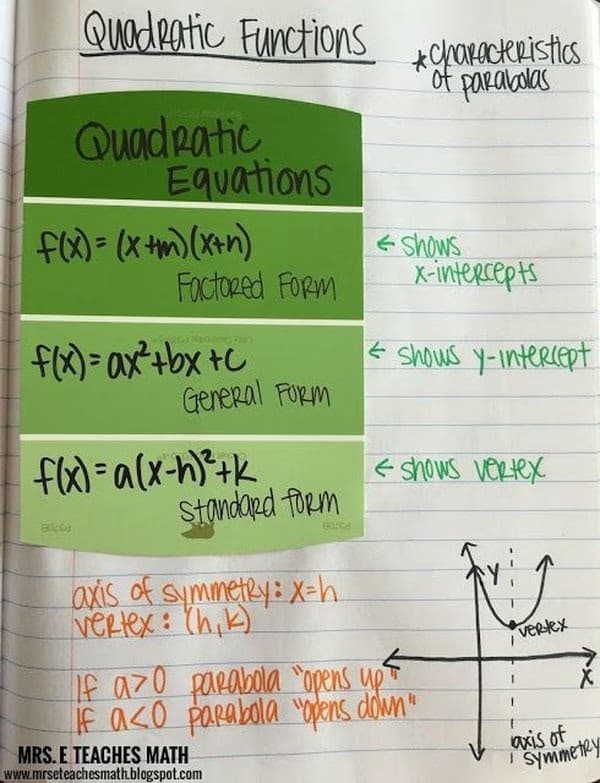 Quadratic Functions
*characteristics
of parabolas
Quadratic
Equations
f(x) = (x+m)(x+n)
Factored Form
← shows
x-intercepts
f(x) = ax²+bx+c
General Form
← shows y-intercept
f(x) = a(x-h)²+k
Standard form
← shows vertex
axis of symmetry: x=h
vertex: (h,k)
If a>0 parabola "opens up"
If a<0 parabola "opens down"
y
vertex
x
axis of
symmetry
MRS. E TEACHES MATH
www.mrseteachesmath.blogspot.com